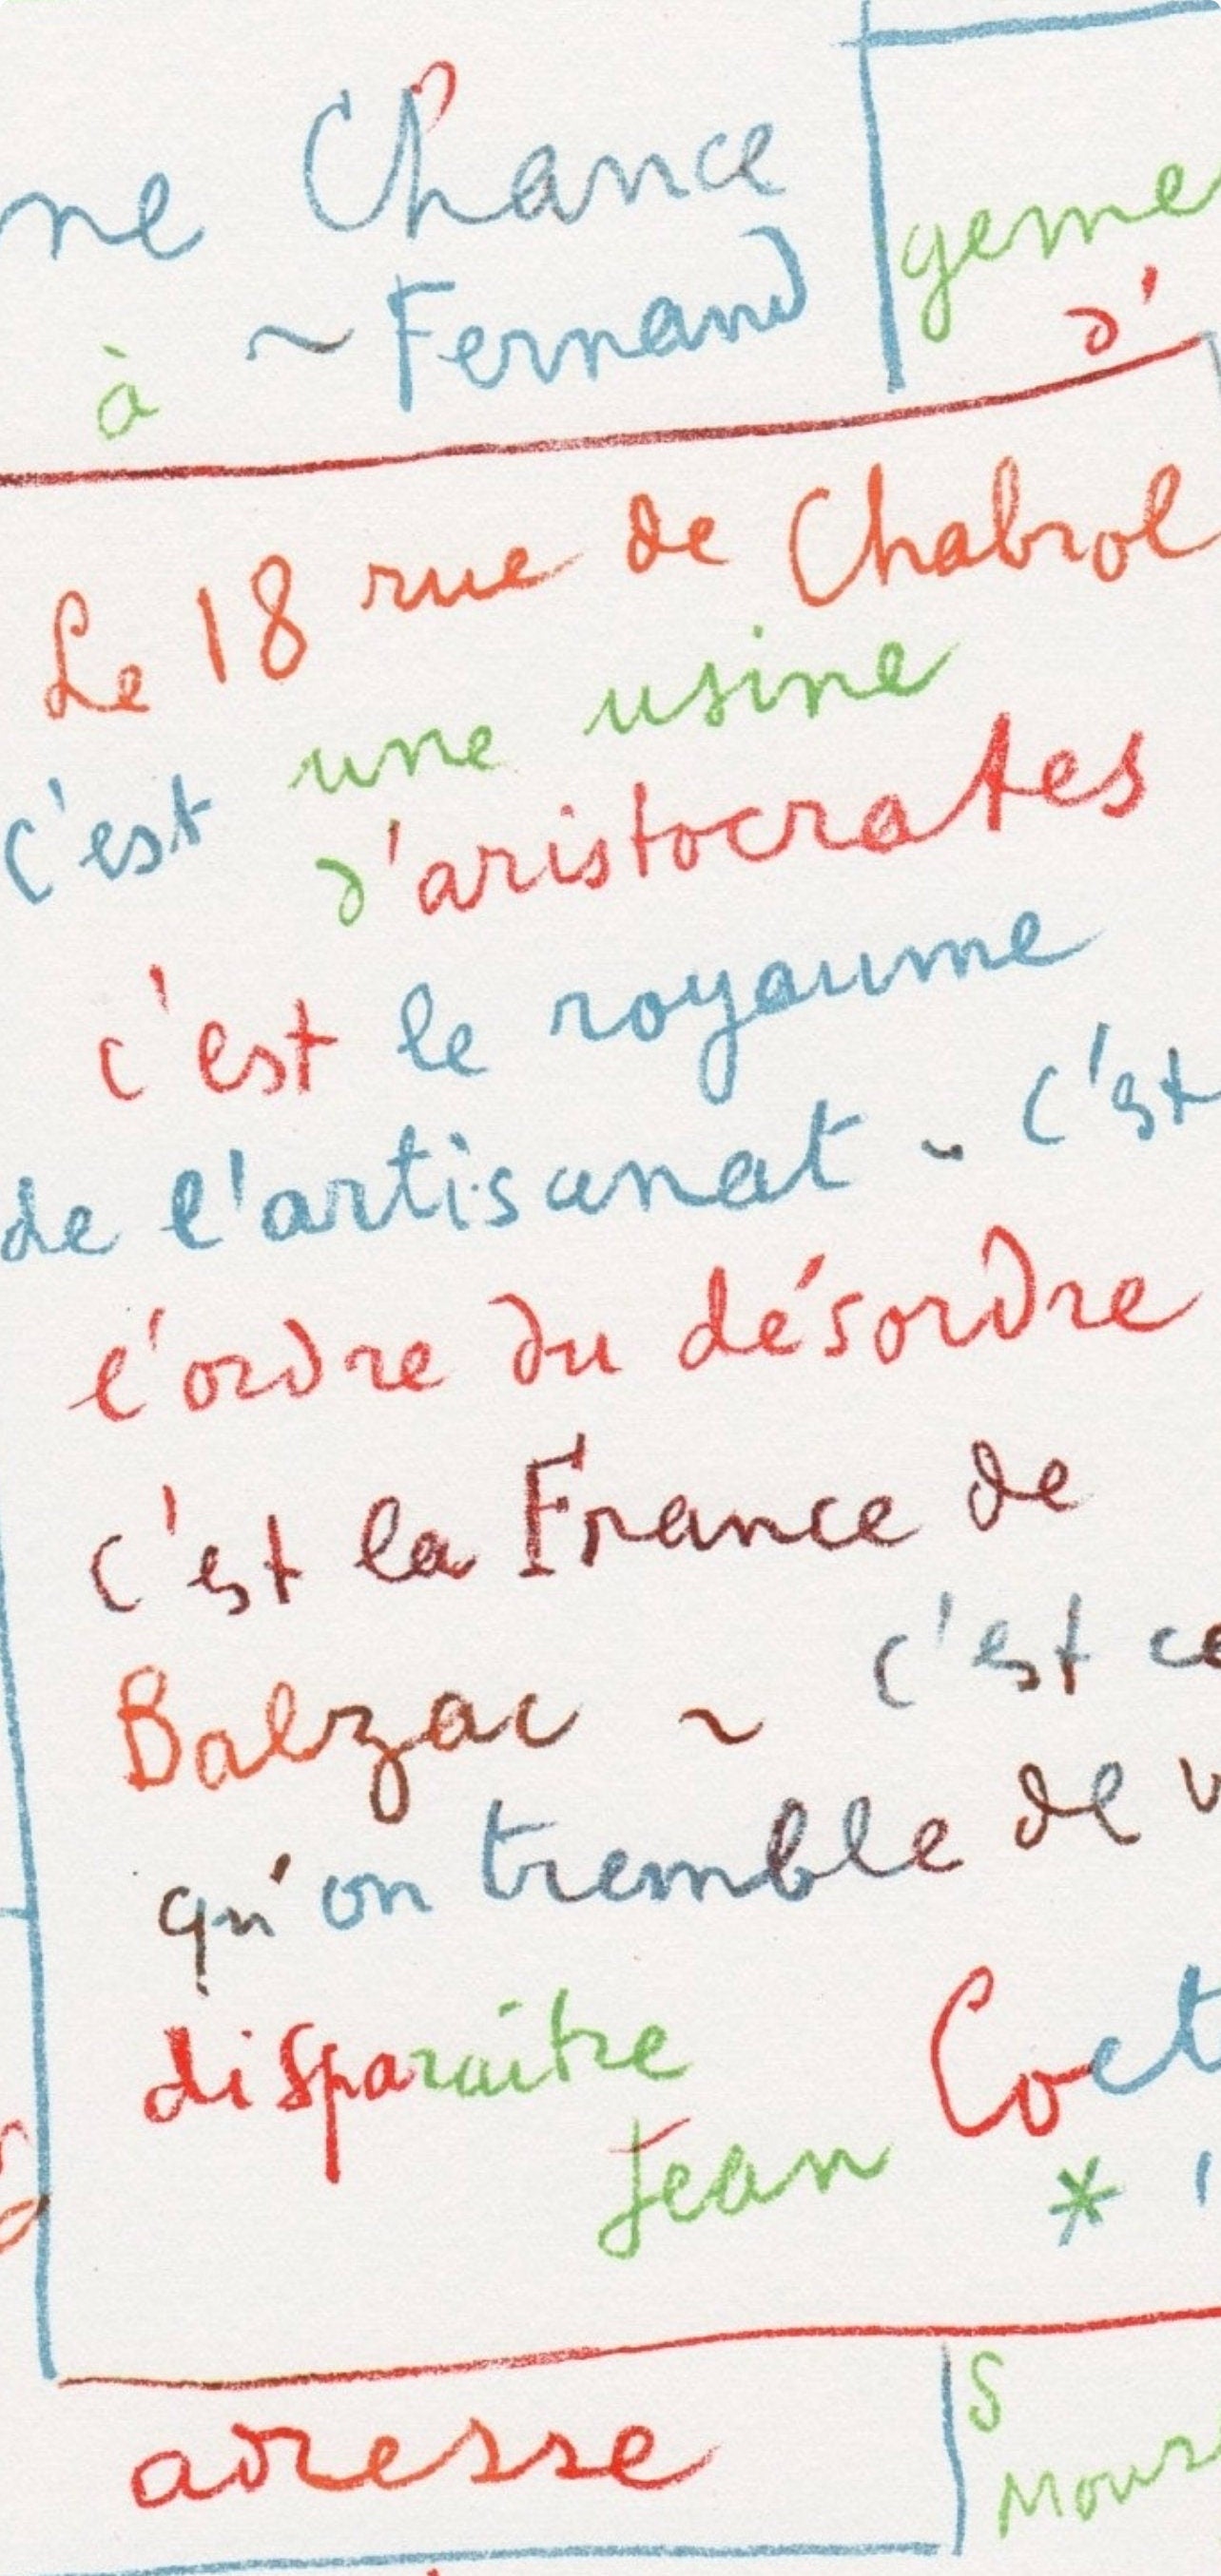 ne Chance
à ~ Fernand
geme
d'
Le 18 rue de Chabrol
c'est une usine
d'aristocrates
c'est le royaume
de l'artisanat - c'est
l'ordre du désordre
c'est la France de
Balzac ~ c'est ce
qu'on tremble de v
disparaitre
Jean Coct
*
adresse
S
Mour